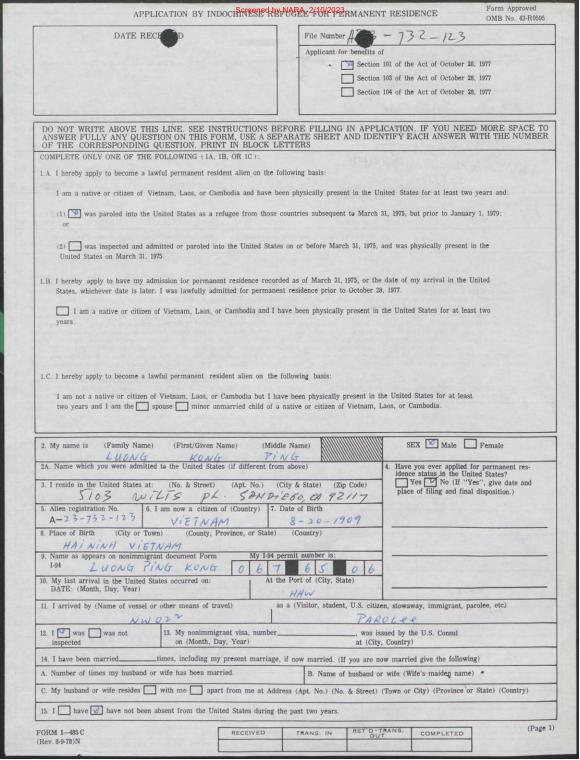 Screened by NARA, 2/10/2023
APPLICATION BY INDOCHINESE REFUGEE FOR PERMANENT RESIDENCE
Form Approved
OMB No. 43-R0595
DATE RECEIVED
File Number - 732 - 123
Applicant for benefits of
Section 101 of the Act of October 28, 1977
Section 103 of the Act of October 28, 1977
Section 104 of the Act of October 28, 1977
DO NOT WRITE ABOVE THIS LINE. SEE INSTRUCTIONS BEFORE FILLING IN APPLICATION. IF YOU NEED MORE SPACE TO
ANSWER FULLY ANY QUESTION ON THIS FORM, USE A SEPARATE SHEET AND IDENTIFY EACH ANSWER WITH THE NUMBER
OF THE CORRESPONDING QUESTION. PRINT IN BLOCK LETTERS
COMPLETE ONLY ONE OF THE FOLLOWING (1A, 1B, OR 1C):
1.A. I hereby apply to become a lawful permanent resident alien on the following basis:
I am a native or citizen of Vietnam, Laos, or Cambodia and have been physically present in the United States for at least two years and:
(1) was paroled into the United States as a refugee from those countries subsequent to March 31, 1975, but prior to January 1, 1979;
or
(2) was inspected and admitted or paroled into the United States on or before March 31, 1975, and was physically present in the
United States on March 31, 1975.
1.B. I hereby apply to have my admission for permanent residence recorded as of March 31, 1975, or the date of my arrival in the United
States, whichever date is later. I was lawfully admitted for permanent residence prior to October 28, 1977.
I am a native or citizen of Vietnam, Laos, or Cambodia and I have been physically present in the United States for at least two
years.
1.C. I hereby apply to become a lawful permanent resident alien on the following basis:
I am not a native or citizen of Vietnam, Laos, or Cambodia but I have been physically present in the United States for at least
two years and I am the spouse minor unmarried child of a native or citizen of Vietnam, Laos, or Cambodia.
2. My name is (Family Name) (First/Given Name) (Middle Name)
LUONG KONG PING
SEX Male Female
2A. Name which you were admitted to the United States (if different from above)
4. Have you ever applied for permanent res-
idence status in the United States?
Yes No (If "Yes", give date and
place of filing and final disposition.)
3. I reside in the United States at: (No. & Street) (Apt. No.) (City & State) (Zip Code)
5103 WILTS PL. SANDIEGO, CA 92117
5. Alien registration No.
A-23-732-123
6. I am now a citizen of (Country)
VIETNAM
7. Date of Birth
8-20-1909
8. Place of Birth (City or Town) (County, Province, or State) (Country)
HAI NINH VIETNAM
9. Name as appears on nonimmigrant document Form
I-94 LUONG PING KONG
My I-94 permit number is:
067 65 06
10. My last arrival in the United States occurred on:
DATE: (Month, Day, Year)
At the Port of (City, State)
HHW
11. I arrived by (Name of vessel or other means of travel) as a (Visitor, student, U.S. citizen, stowaway, immigrant, parolee, etc.)
NW022 PAROLee
12. I was was not
inspected
13. My nonimmigrant visa, number , was issued by the U.S. Consul
on (Month, Day, Year) at (City, Country)
14. I have been married times, including my present marriage, if now married. (If you are now married give the following)
A. Number of times my husband or wife has been married.
B. Name of husband or wife (Wife's maiden name)
C. My husband or wife resides with me apart from me at Address (Apt. No.) (No. & Street) (Town or City) (Province or State) (Country)
15. I have have not been absent from the United States during the past two years.
FORM I—485 C
(Rev. 8-9-78)N
RECEIVED
TRANS. IN
RET'D-TRANS. OUT
COMPLETED
(Page 1)